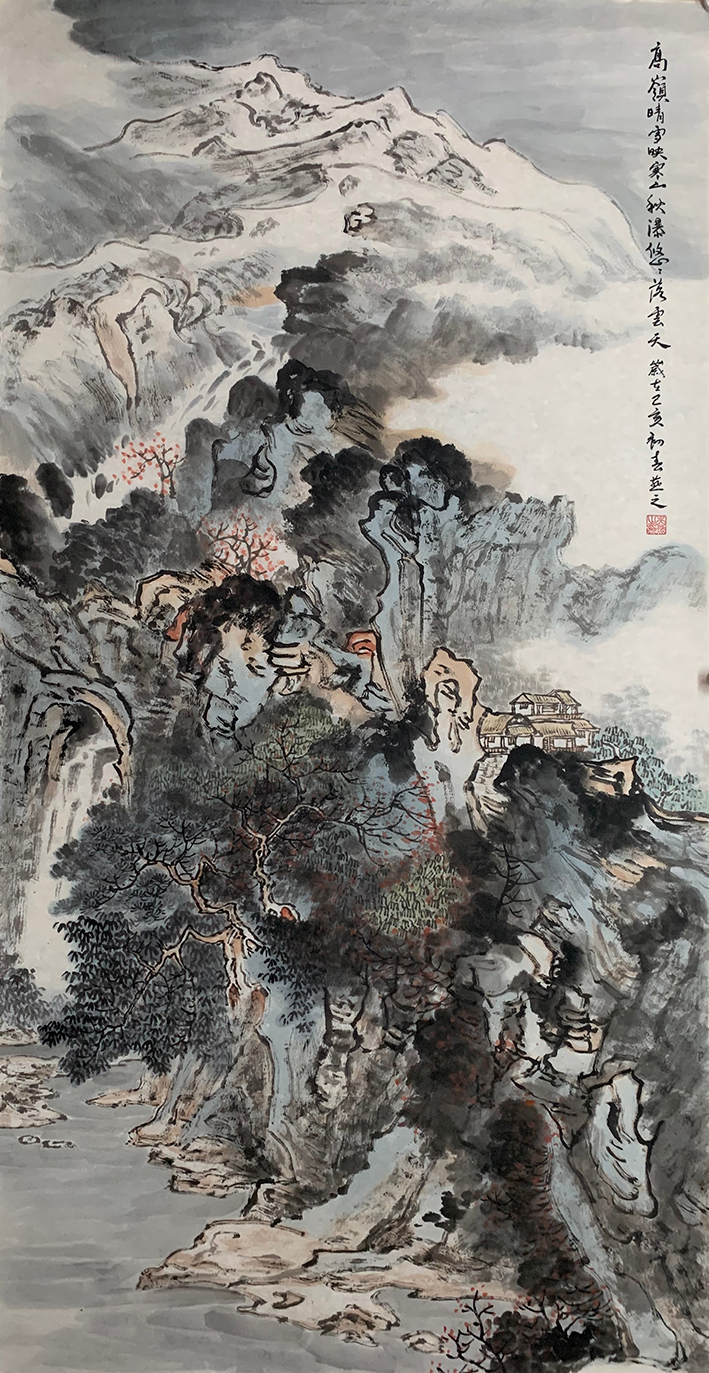 高嶺晴雪映寒山秋瀑悠〻落雲天歲在己亥初春燕之